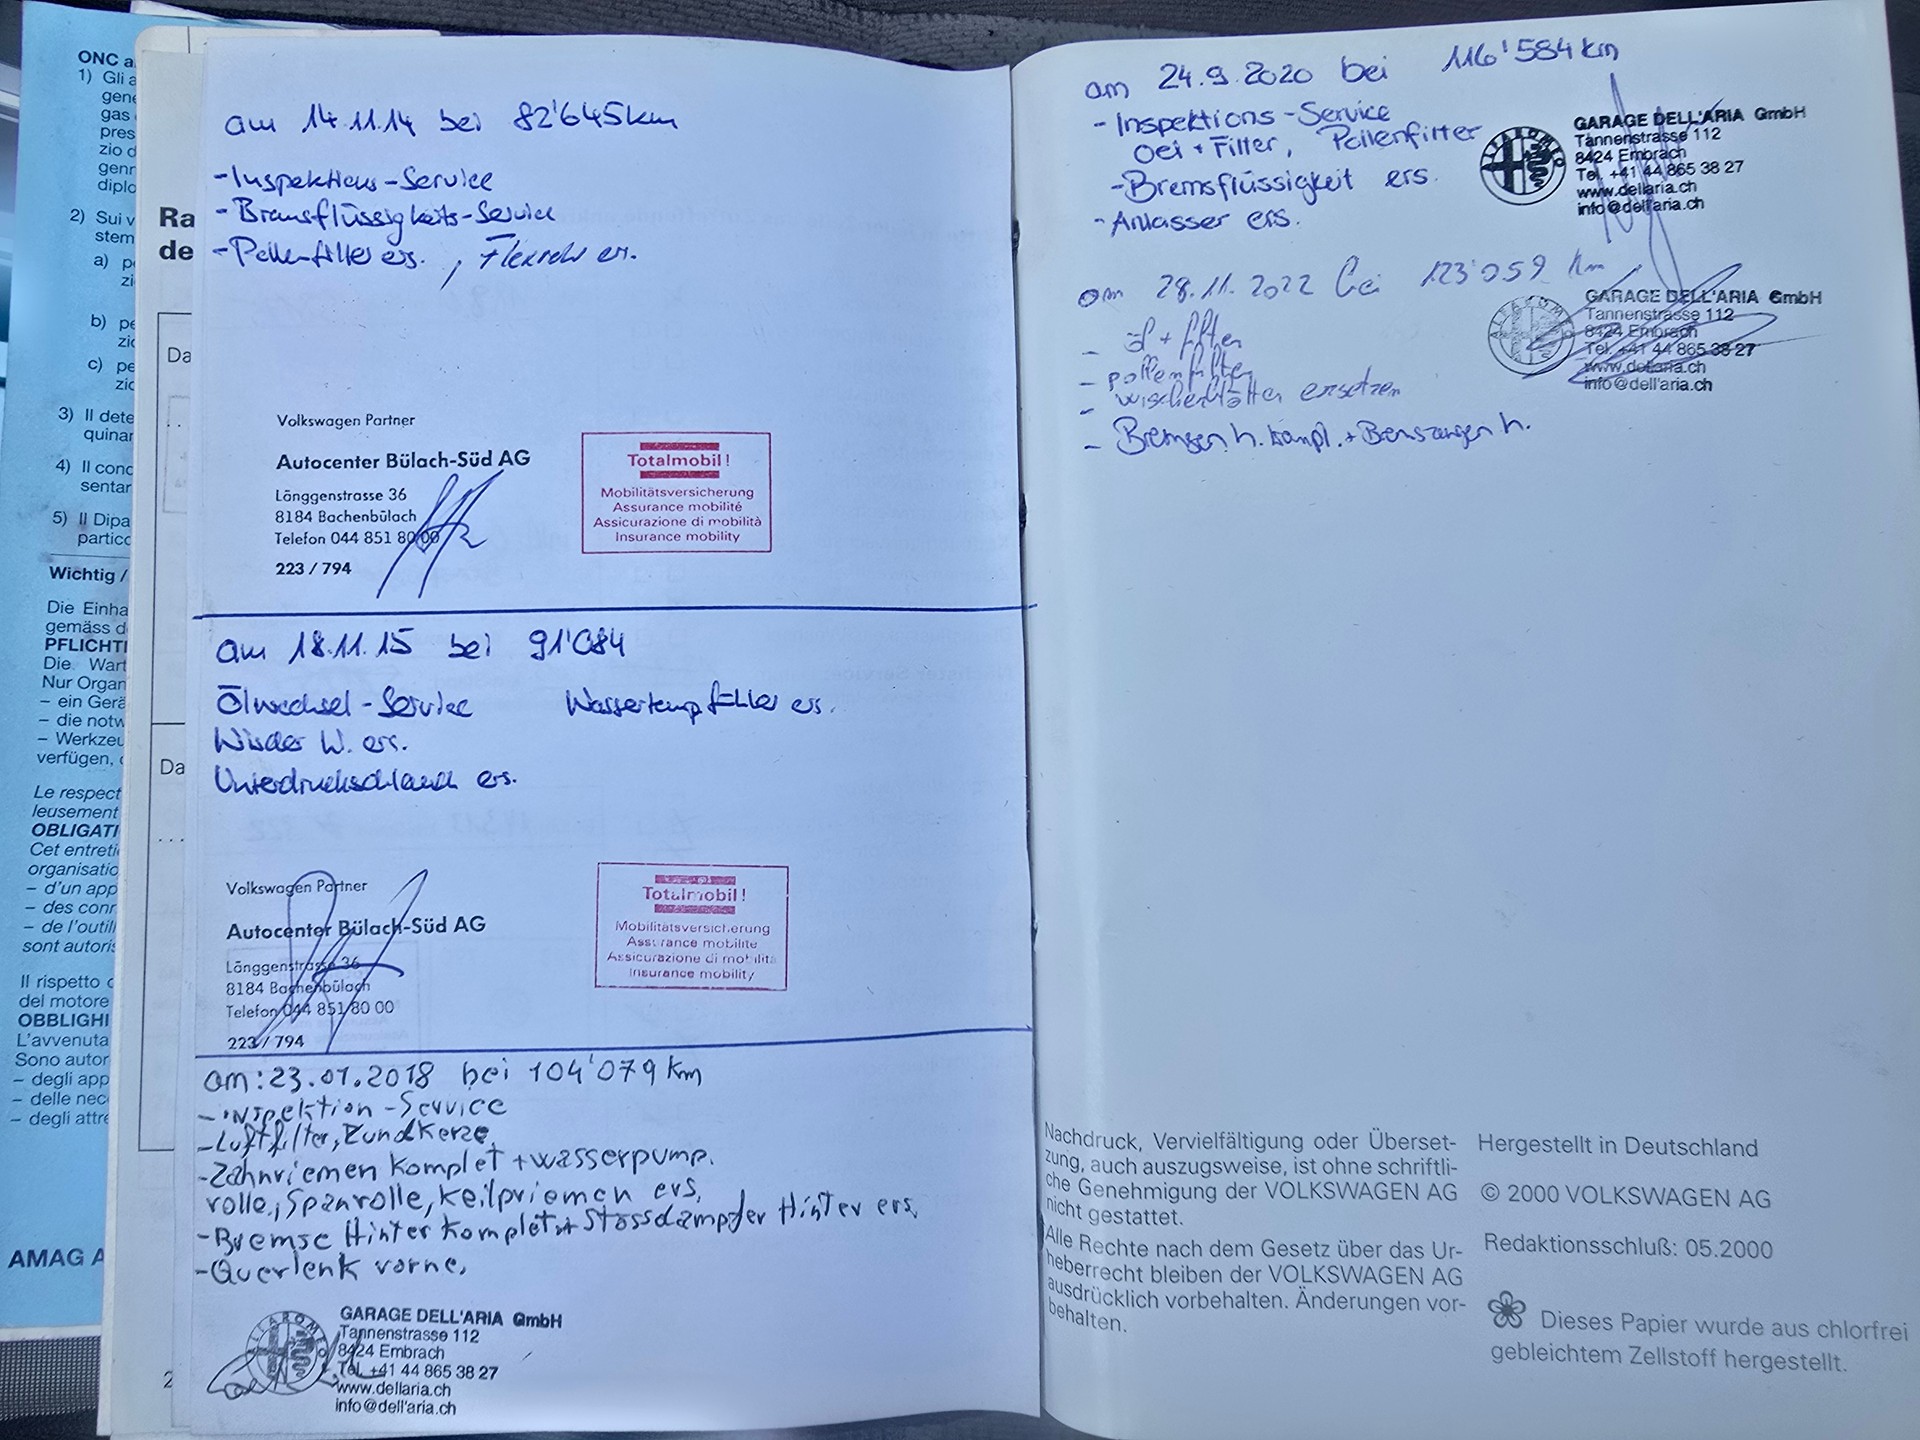 ONC a
1) Gli a
gene
gas
pres
zio d
genr
diplo
2) Sui v
stem
a) pe
zi
b) pe
zic
c) pe
zic
3) Il dete
quinar
4) Il conc
sentar
5) Il Dipa
partico
Wichtig /
Die Einha
gemäss d
PFLICHTI
Die Wart
Nur Organ
– ein Gerä
– die notw
– Werkzeu
verfügen,
Le respect
leusement
OBLIGATI
Cet entreti
organisatio
– d'un app
– des conn
– de l'outil
sont autoris
Il rispetto
del motore
OBBLIGHI
L'avvenuta
Sono autor
– degli app
– delle nec
– degli attre
AMAG A
Ra
de
Da
Da
2
am 14.11.14 bei 82'645km
-Inspektions-Service
-Bremsflüssigkeits-Service
-Pollenfilter ers. , Flexrohr ers.
Volkswagen Partner
Autocenter Bülach-Süd AG
Länggenstrasse 36
8184 Bachenbülach
Telefon 044 851 80 00
223 / 794
Totalmobil!
Mobilitätsversicherung
Assurance mobilité
Assicurazione di mobilità
Insurance mobility
am 18.11.15 bei 91'084
Ölwechsel-Service Wassertempfühler ers.
Wischer W. ers.
Unterdruckschlauch ers.
Volkswagen Partner
Autocenter Bülach-Süd AG
Länggenstrasse 36
8184 Bachenbülach
Telefon 044 851 80 00
223 / 794
Totalmobil!
Mobilitätsversicherung
Assurance mobilité
Assicurazione di mobilità
Insurance mobility
am:23.01.2018 bei 104'079km
-Inspektion-Service
-Luftfilter, Zundkerze,
-Zahnriemen komplet + wasserpump.
rolle, Spanrolle, Keilpriemen ers,
-Bremse Hinter komplet + Stossdämpfer Hinter ers.
-Querlenk vorne,
GARAGE DELL'ARIA GmbH
Tannenstrasse 112
8424 Embrach
Tel. +41 44 865 38 27
www.dellaria.ch
info@dell'aria.ch
am 24.9.2020 bei 116'584km
- Inspektions-Service
Oel + Filter, Pollenfilter
-Bremsflüssigkeit ers.
-Anlasser ers.
GARAGE DELL'ARIA GmbH
Tannenstrasse 112
8424 Embrach
Tel. +41 44 865 38 27
www.dellaria.ch
info@dell'aria.ch
am 28.11.2022 bei 123'059 km
- öl + filter
- pollenfilter
- wischerblätter ersetzen
- Bremsen h. kompl. + Bremszangen h.
GARAGE DELL'ARIA GmbH
Tannenstrasse 112
8424 Embrach
Tel. +41 44 865 38 27
www.dellaria.ch
info@dell'aria.ch
Nachdruck, Vervielfältigung oder Überset-
zung, auch auszugsweise, ist ohne schriftli-
che Genehmigung der VOLKSWAGEN AG
nicht gestattet.
Alle Rechte nach dem Gesetz über das Ur-
heberrecht bleiben der VOLKSWAGEN AG
ausdrücklich vorbehalten. Änderungen vor-
behalten.
Hergestellt in Deutschland
© 2000 VOLKSWAGEN AG
Redaktionsschluß: 05.2000
Dieses Papier wurde aus chlorfrei
gebleichtem Zellstoff hergestellt.